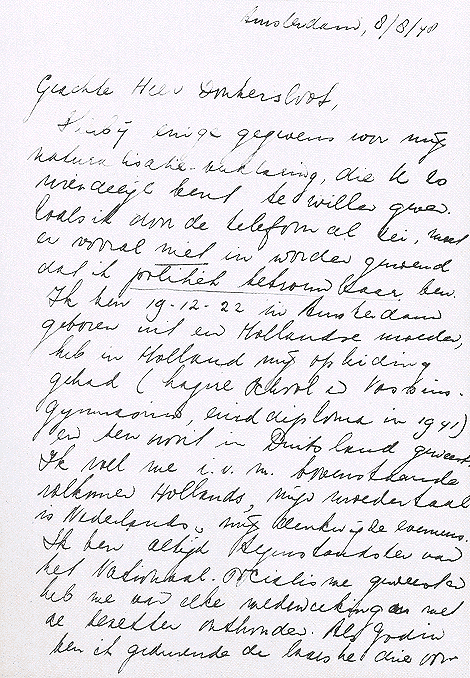 Amsterdam, 8/8/40
Geachte Heer Donkersloot,
Hierbij enige gegevens voor mijn
naturalisatie-verklaring, die U zo
vriendelijk bent te willen geven.
Zoals ik door de telefoon al zei, moet
er vooral niet in worden genoemd
dat ik politiek betrouwbaar ben.
Ik ben 19-12-22 in Amsterdam
geboren uit een Hollandse moeder,
heb in Holland mijn opleiding
gehad ( lagere School en Vossius-
gymnasium, einddiploma in 1941)
en ben nooit in Duitsland geweest.
Ik voel me i.v.m. bovenstaande
volkomen Hollands, mijn moedertaal
is Nederlands, mijn denkwijze eveneens.
Ik ben altijd tegenstandster van
het Nationaal-Socialisme geweest en
heb me van elke medewerking aan met
de bezetter onthouden. Als Jodin
ben ik gedurende de laatste drie voor